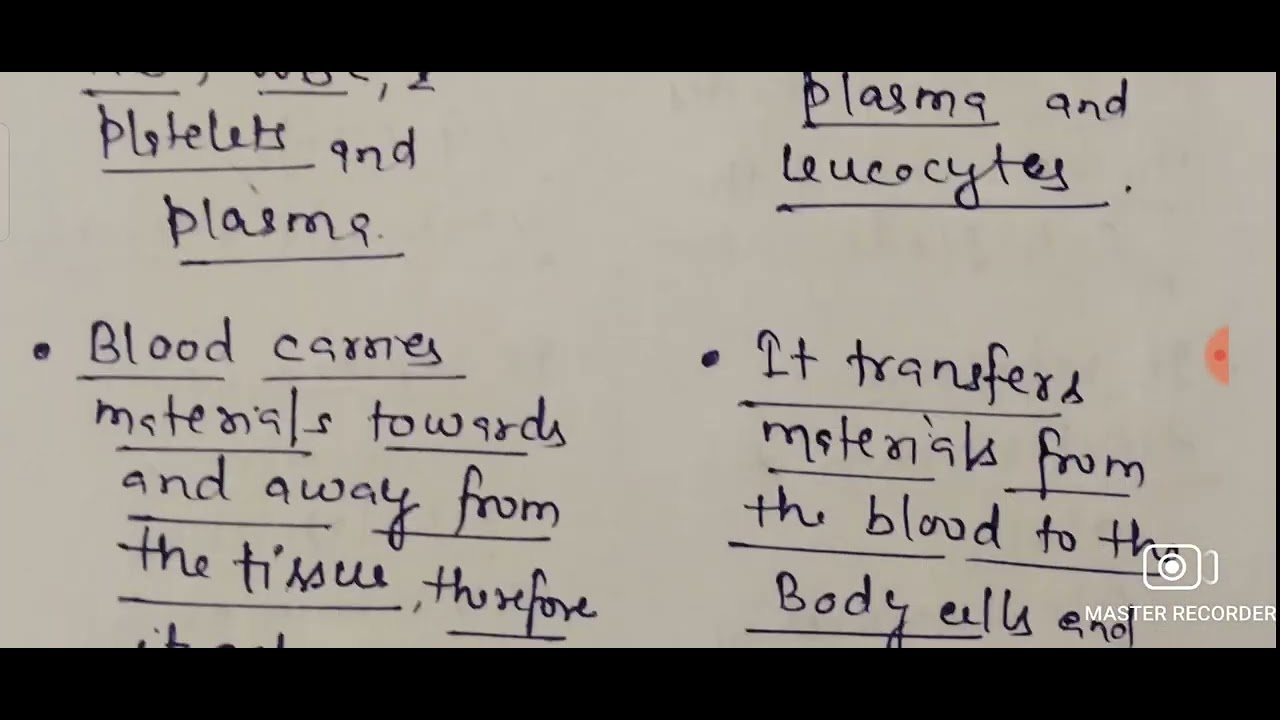 platelets and
plasma.
• Blood carries
materials towards
and away from
the tissue, therefore
plasma and
leucocytes.
• It transfers
materials from
the blood to the
Body cells and
MASTER RECORDER